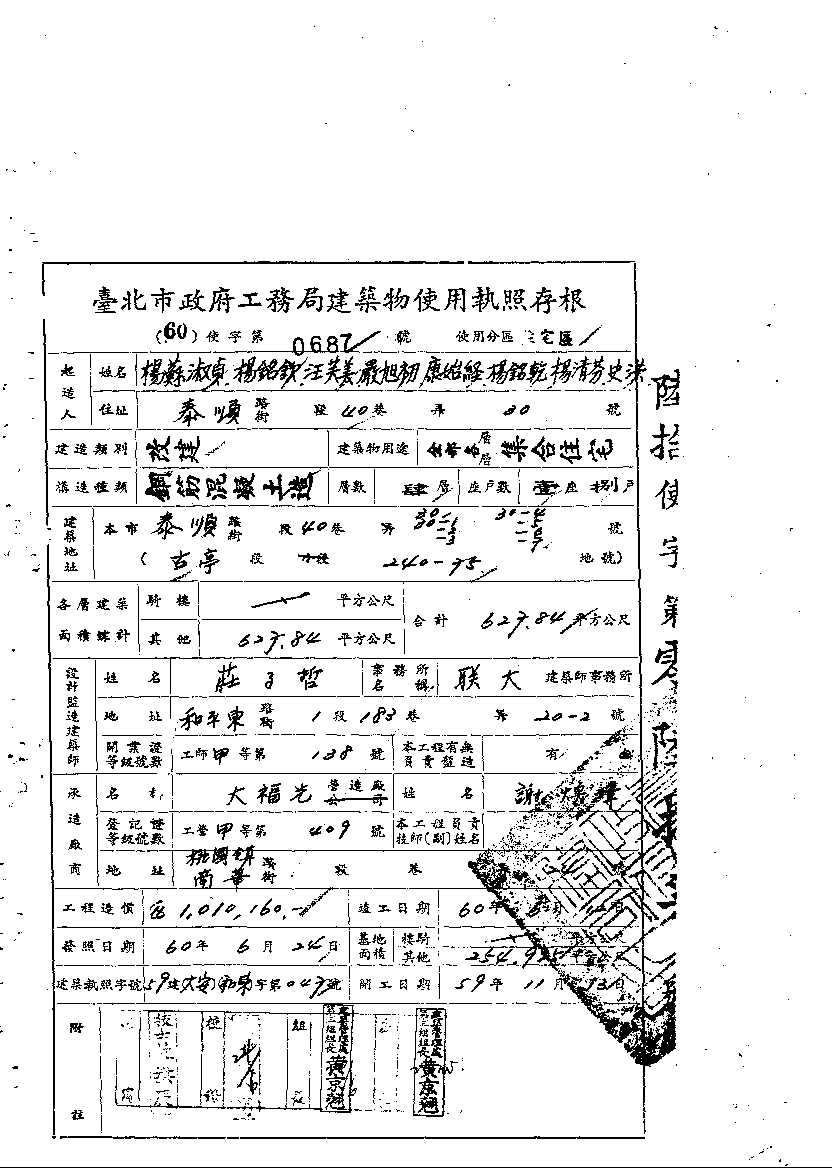 臺北市政府工務局建築物使用執照存根
(60)使字第 0687 號 使用分區 宅區
起造人 姓名 楊蘇淑貞 楊銘欽 汪芙姜 嚴旭初 康始經 楊銘乾 楊清芬 史洪
住址 泰順 路街 段 40 巷 弄 30 號
建造類別 改建 建築物用途 全部各層 集合住宅
構造種類 鋼筋混凝土造 層數 肆層 座戶數 壹座 捌戶
建築地址 本市 泰順 路街 段 40 巷 弄 30 30-1 -2 -3 30-4 -5 -6 -7 號
(古亭 段 小段 240-75 地號)
各層建築面積總計 騎樓 平方公尺 合計 627.84 平方公尺
其他 627.84 平方公尺
設計監造建築師 姓名 莊子哲 事務所名稱 联大 建築師事務所
地址 和平東 路街 1 段 183 巷 弄 20-2 號
開業證等級號數 工師甲等第 138 號 本工程有無負責監造 有
承造廠商 名 大福光 營造廠公司 姓名 謝
登記證等級號數 工營甲等第 409 號 本工程負責技師(副)姓名
地址 桃園鎮 南華 路街 段 巷
工程造價 1,010,160.- 竣工日期 60年 6月 日
發照日期 60年 6月 24日 基地面積 騎樓 平方公尺
其他 254.9 平方公尺
建築執照字號 59建 字第 號 開工日期 59年 11月 13日
附註 組長 第三組組長 黃京翹 第三組組長 黃京翹
陸拾使字第零陸